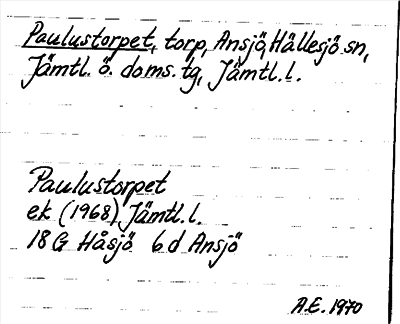 Paulustorpet, torp, Ansjö, Hällesjö sn,
Jämtl. ö. doms. tg, Jämtl. l.
Paulustorpet
ek (1968) Jämtl. l.
18 G Håsjö 6 d Ansjö
A.E. 1970